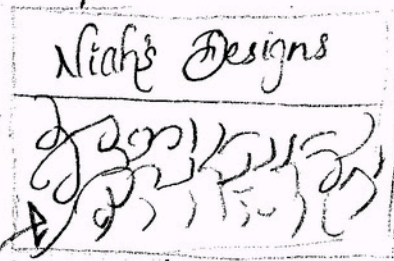 Niah's Designs